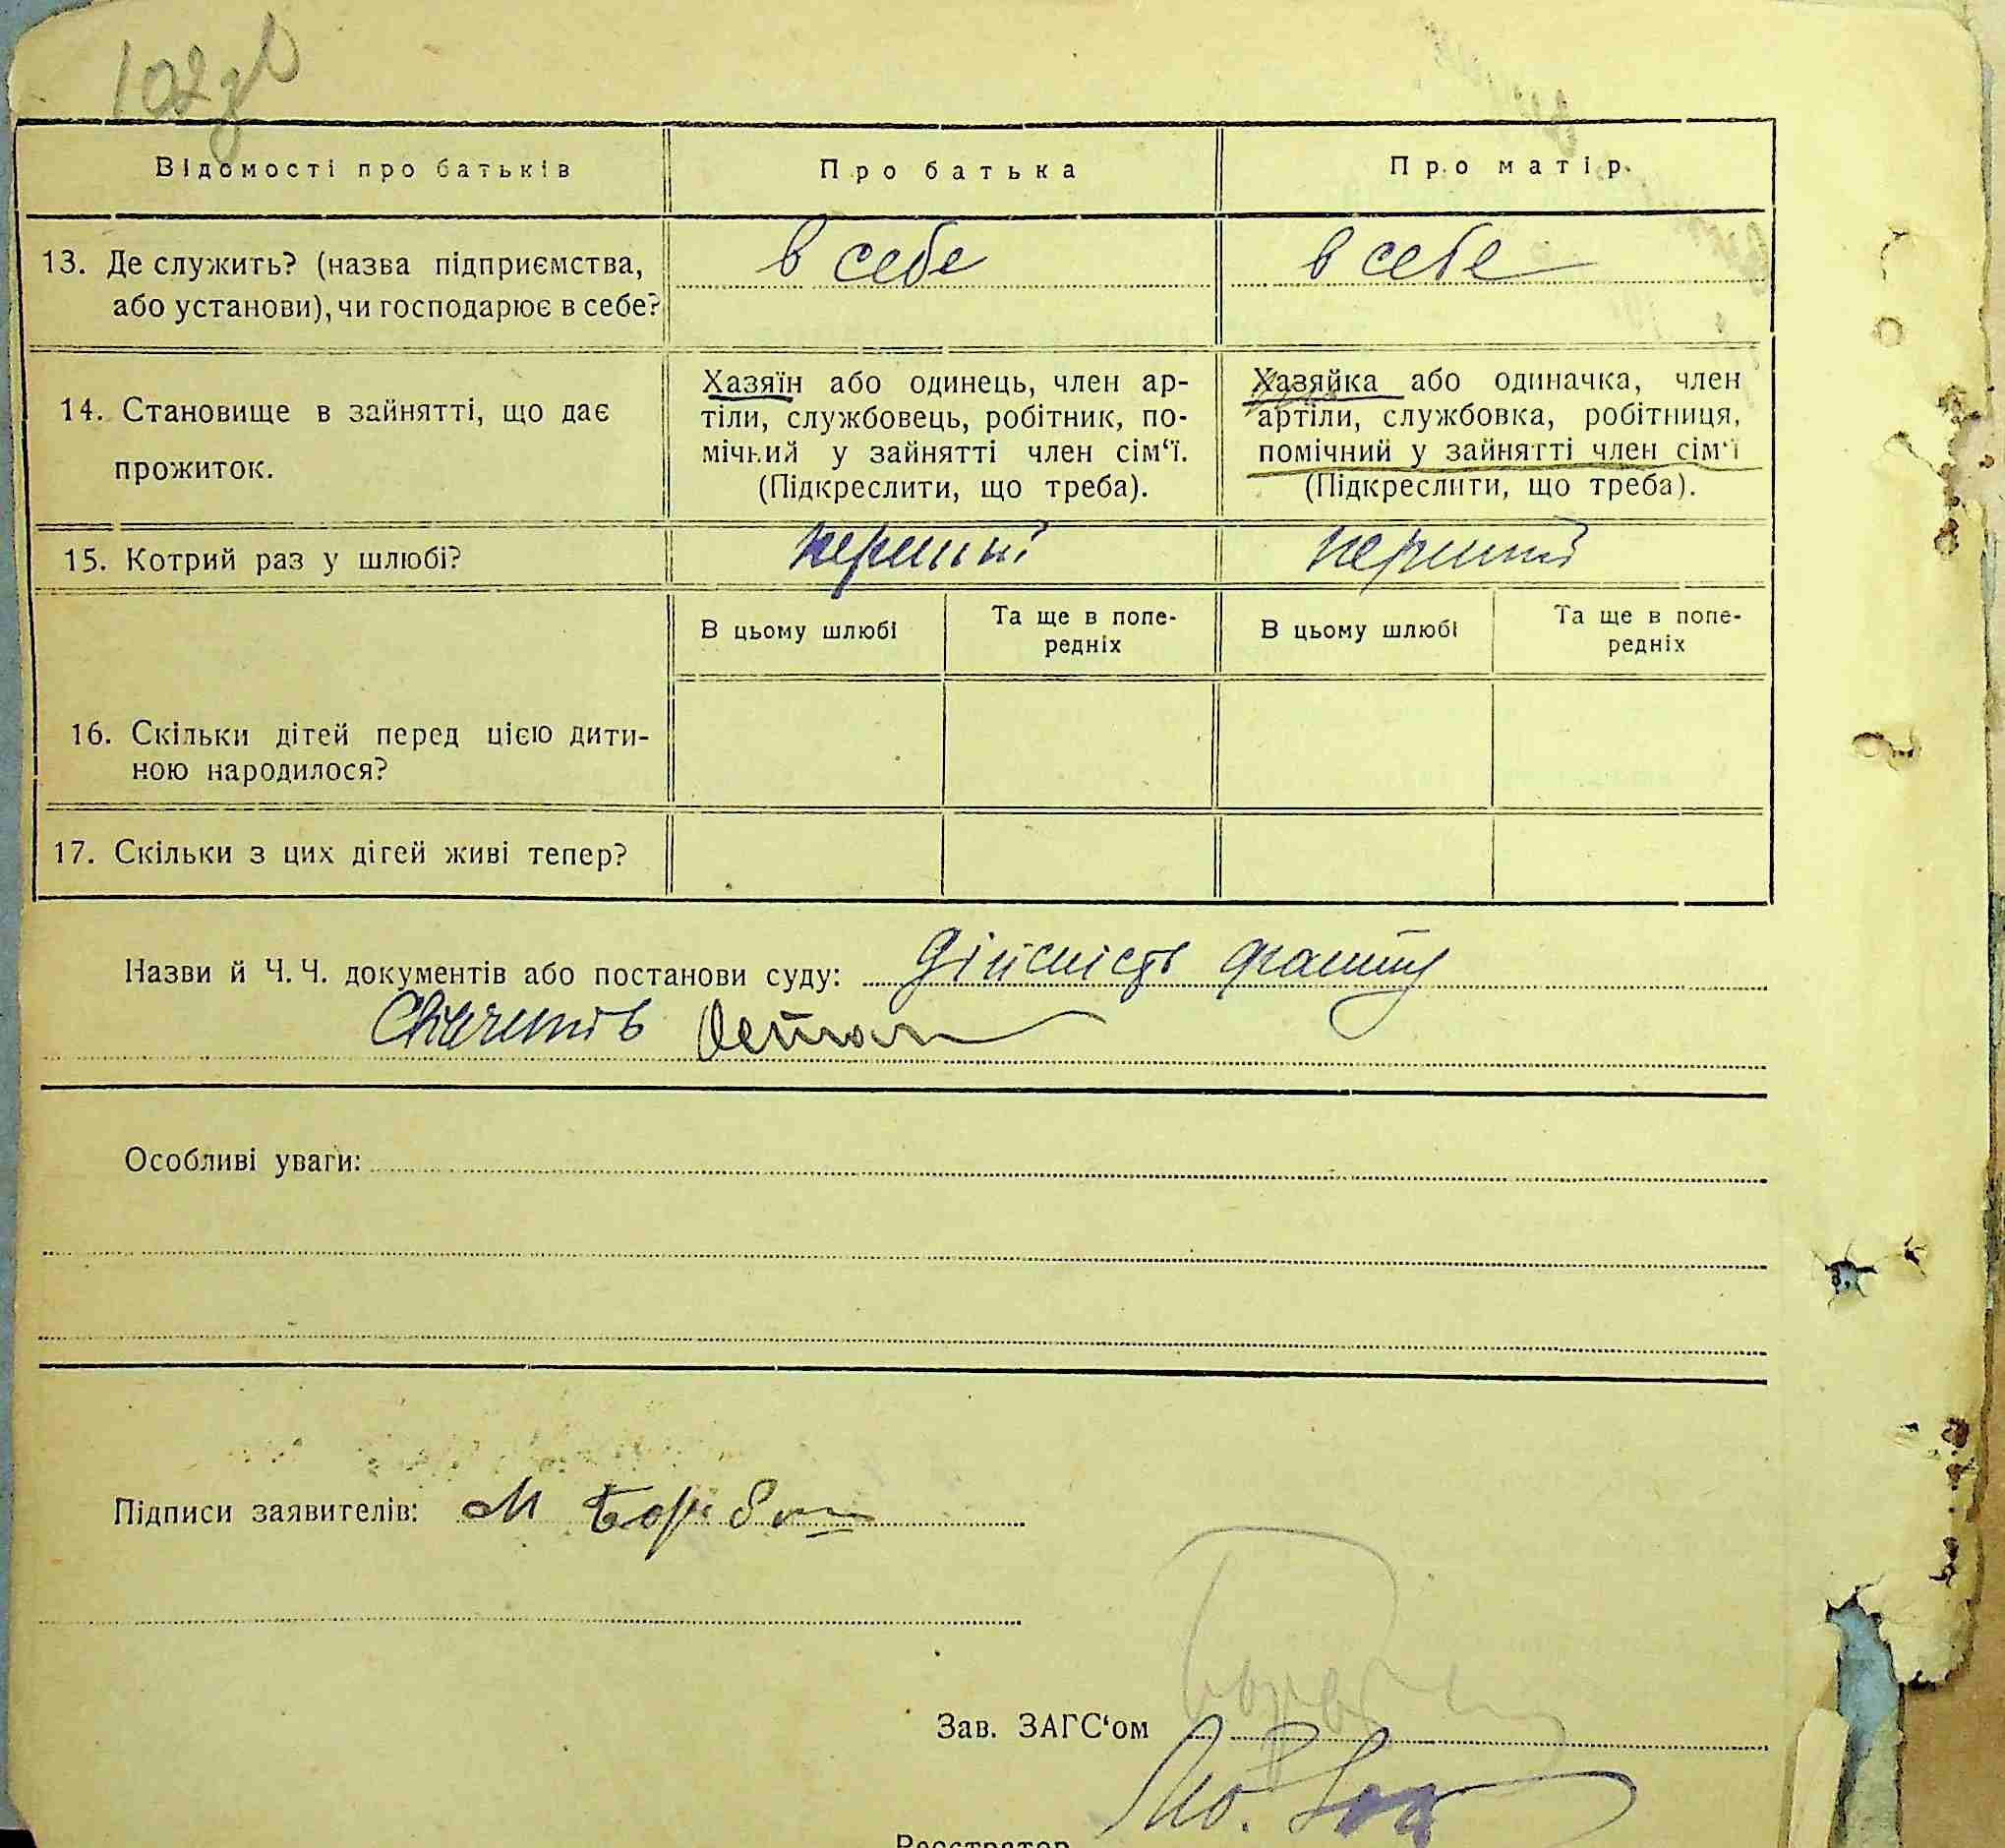 102
Відомості про батьків
Про батька
Про матір.
13. Де служить? (назва підприємства,
або установи), чи господарює в себе?
в себе
в себе
14. Становище в зайнятті, що дає
прожиток.
Хазяїн або одинець, член ар-
тіли, службовець, робітник, по-
мічний у зайнятті член сім‘ї.
(Підкреслити, що треба).
Хазяйка або одиначка, член
артіли, службовка, робітниця,
помічний у зайнятті член сім‘ї
(Підкреслити, що треба).
15. Котрий раз у шлюбі?
перший
перший
В цьому шлюбі
Та ще в попе-
редніх
В цьому шлюбі
Та ще в попе-
редніх
16. Скільки дітей перед цією дити-
ною народилося?
17. Скільки з цих дітей живі тепер?
Назви й Ч. Ч. документів або постанови суду: дійсність факту
Особливі уваги:
Підписи заявителів: М
Зав. ЗАГС‘ом
Реєстратор